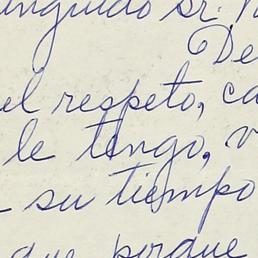 inguido Sr.
De
el respeto, ca
le tengo, v
su tiempo
que porque